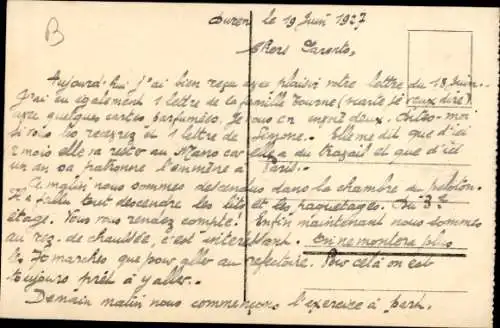 B
Duren le 19 Juin 1927
Chers Parents,
Aujourd'hui j'ai bien reçu avec plaisir votre lettre du 18 Juin.
J'ai eu également 1 lettre de la famille Tourne (carte je veux dire)
avec quelques cartes parfumées. Je vous en mont deux. Dites-moi
si vous les recevrez et 1 lettre de Simone. Elle me dit que d'ici
2 mois elle va rester au Mans car elle a du travail et que d'ici
un an sa patronne l'emmène à Paris.
Ce matin nous sommes descendus dans la chambre du peloton.
Il a fallu tout descendre les lits et les paquetages. Du 3e
étage. Vous vous rendez compte! Enfin maintenant nous sommes
au rez de chaussée, c'est intéressant. On ne montera plus
les marches que pour aller au réfectoire. Pour cela on est
toujours prêt à y aller.
Demain matin nous commençons l'exercice à part.